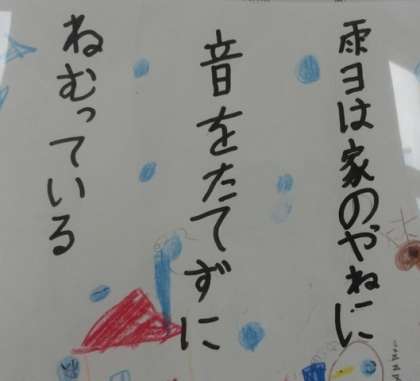 雨ヨは家のやねに
音をたてずに
ねむっている